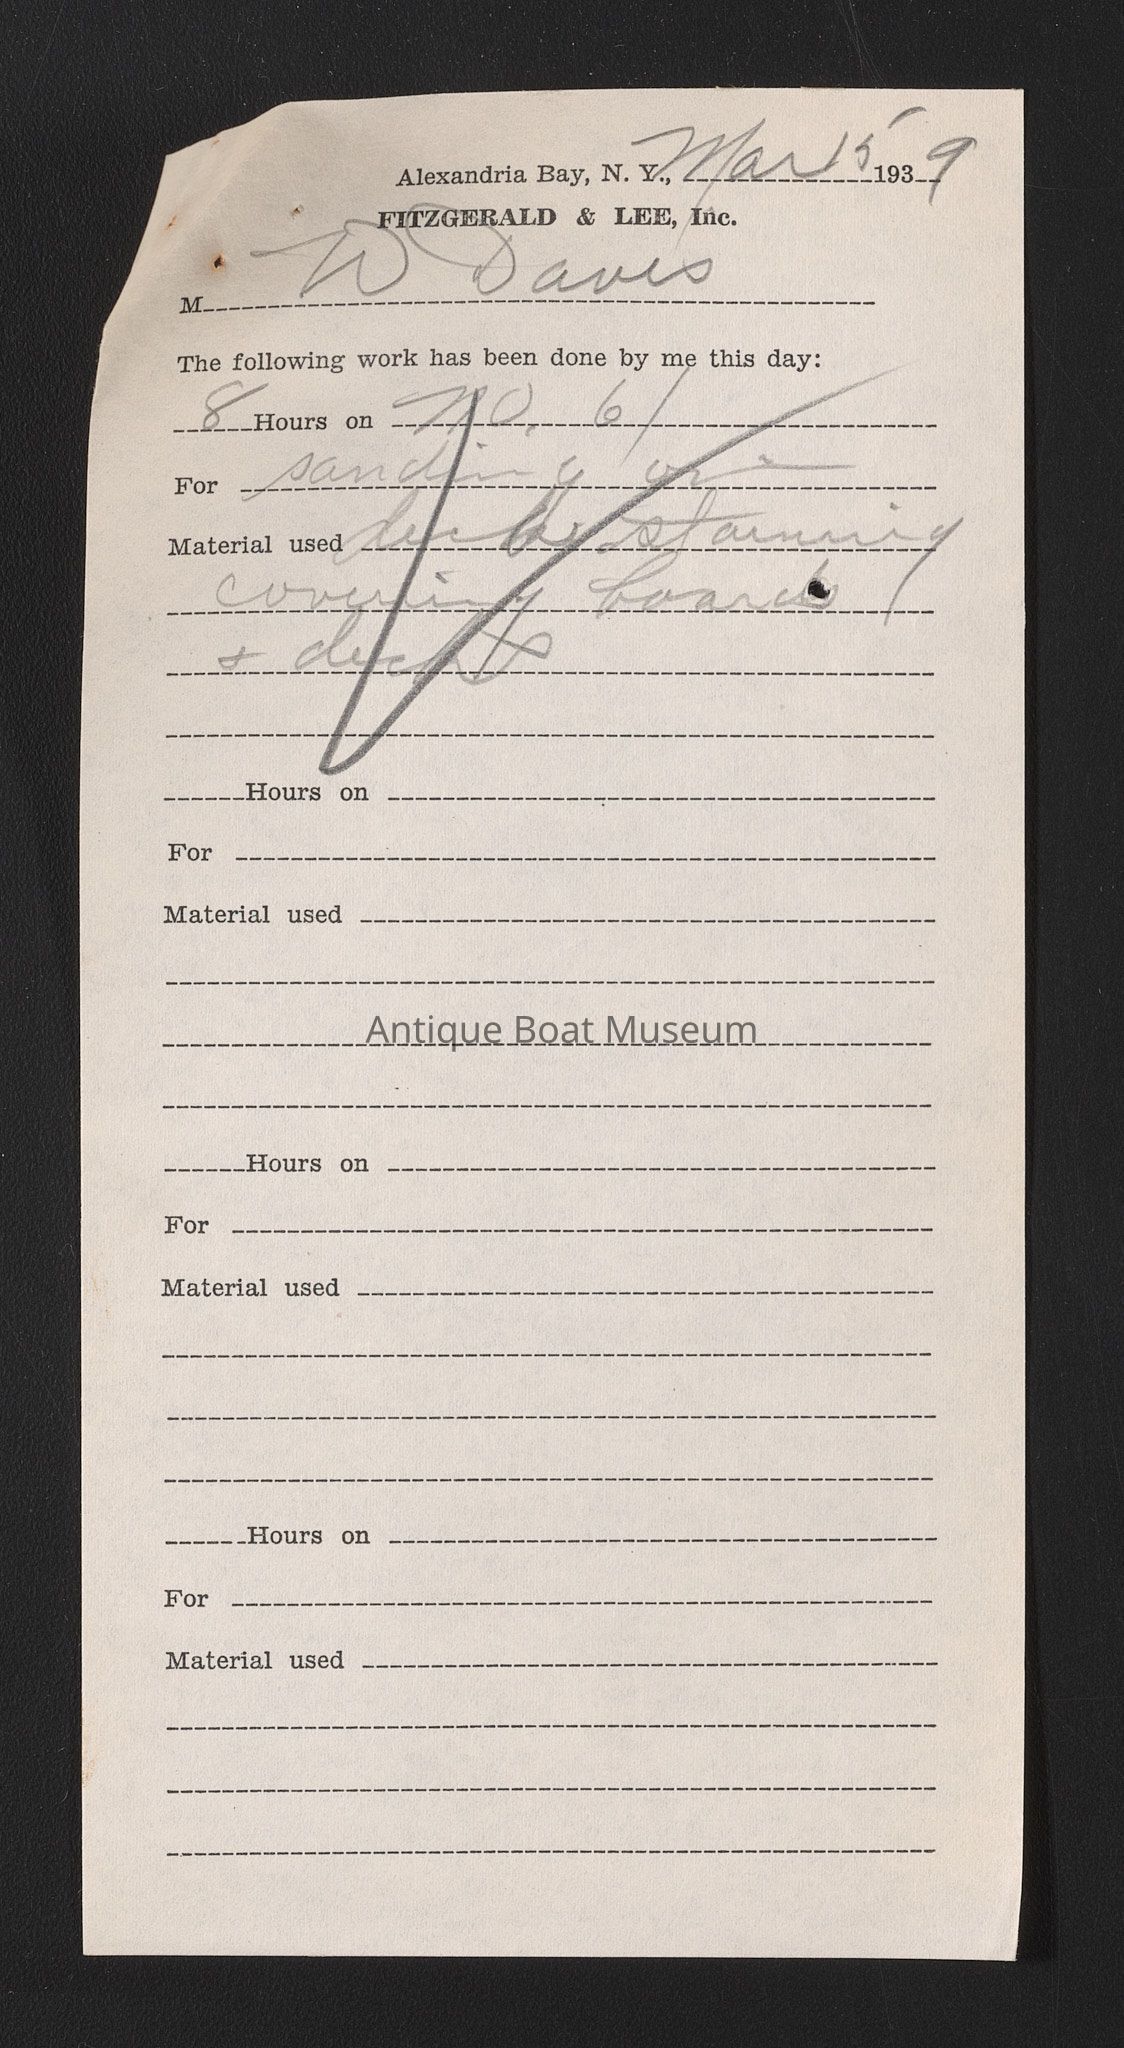 Alexandria Bay, N. Y., Mar 15 1939
FITZGERALD & LEE, Inc.
M W Davis
The following work has been done by me this day:
8 Hours on no. 61
For sanding on
Material used decks staining
covering boards
& deck
Hours on
For
Material used
Antique Boat Museum
Hours on
For
Material used
Hours on
For
Material used